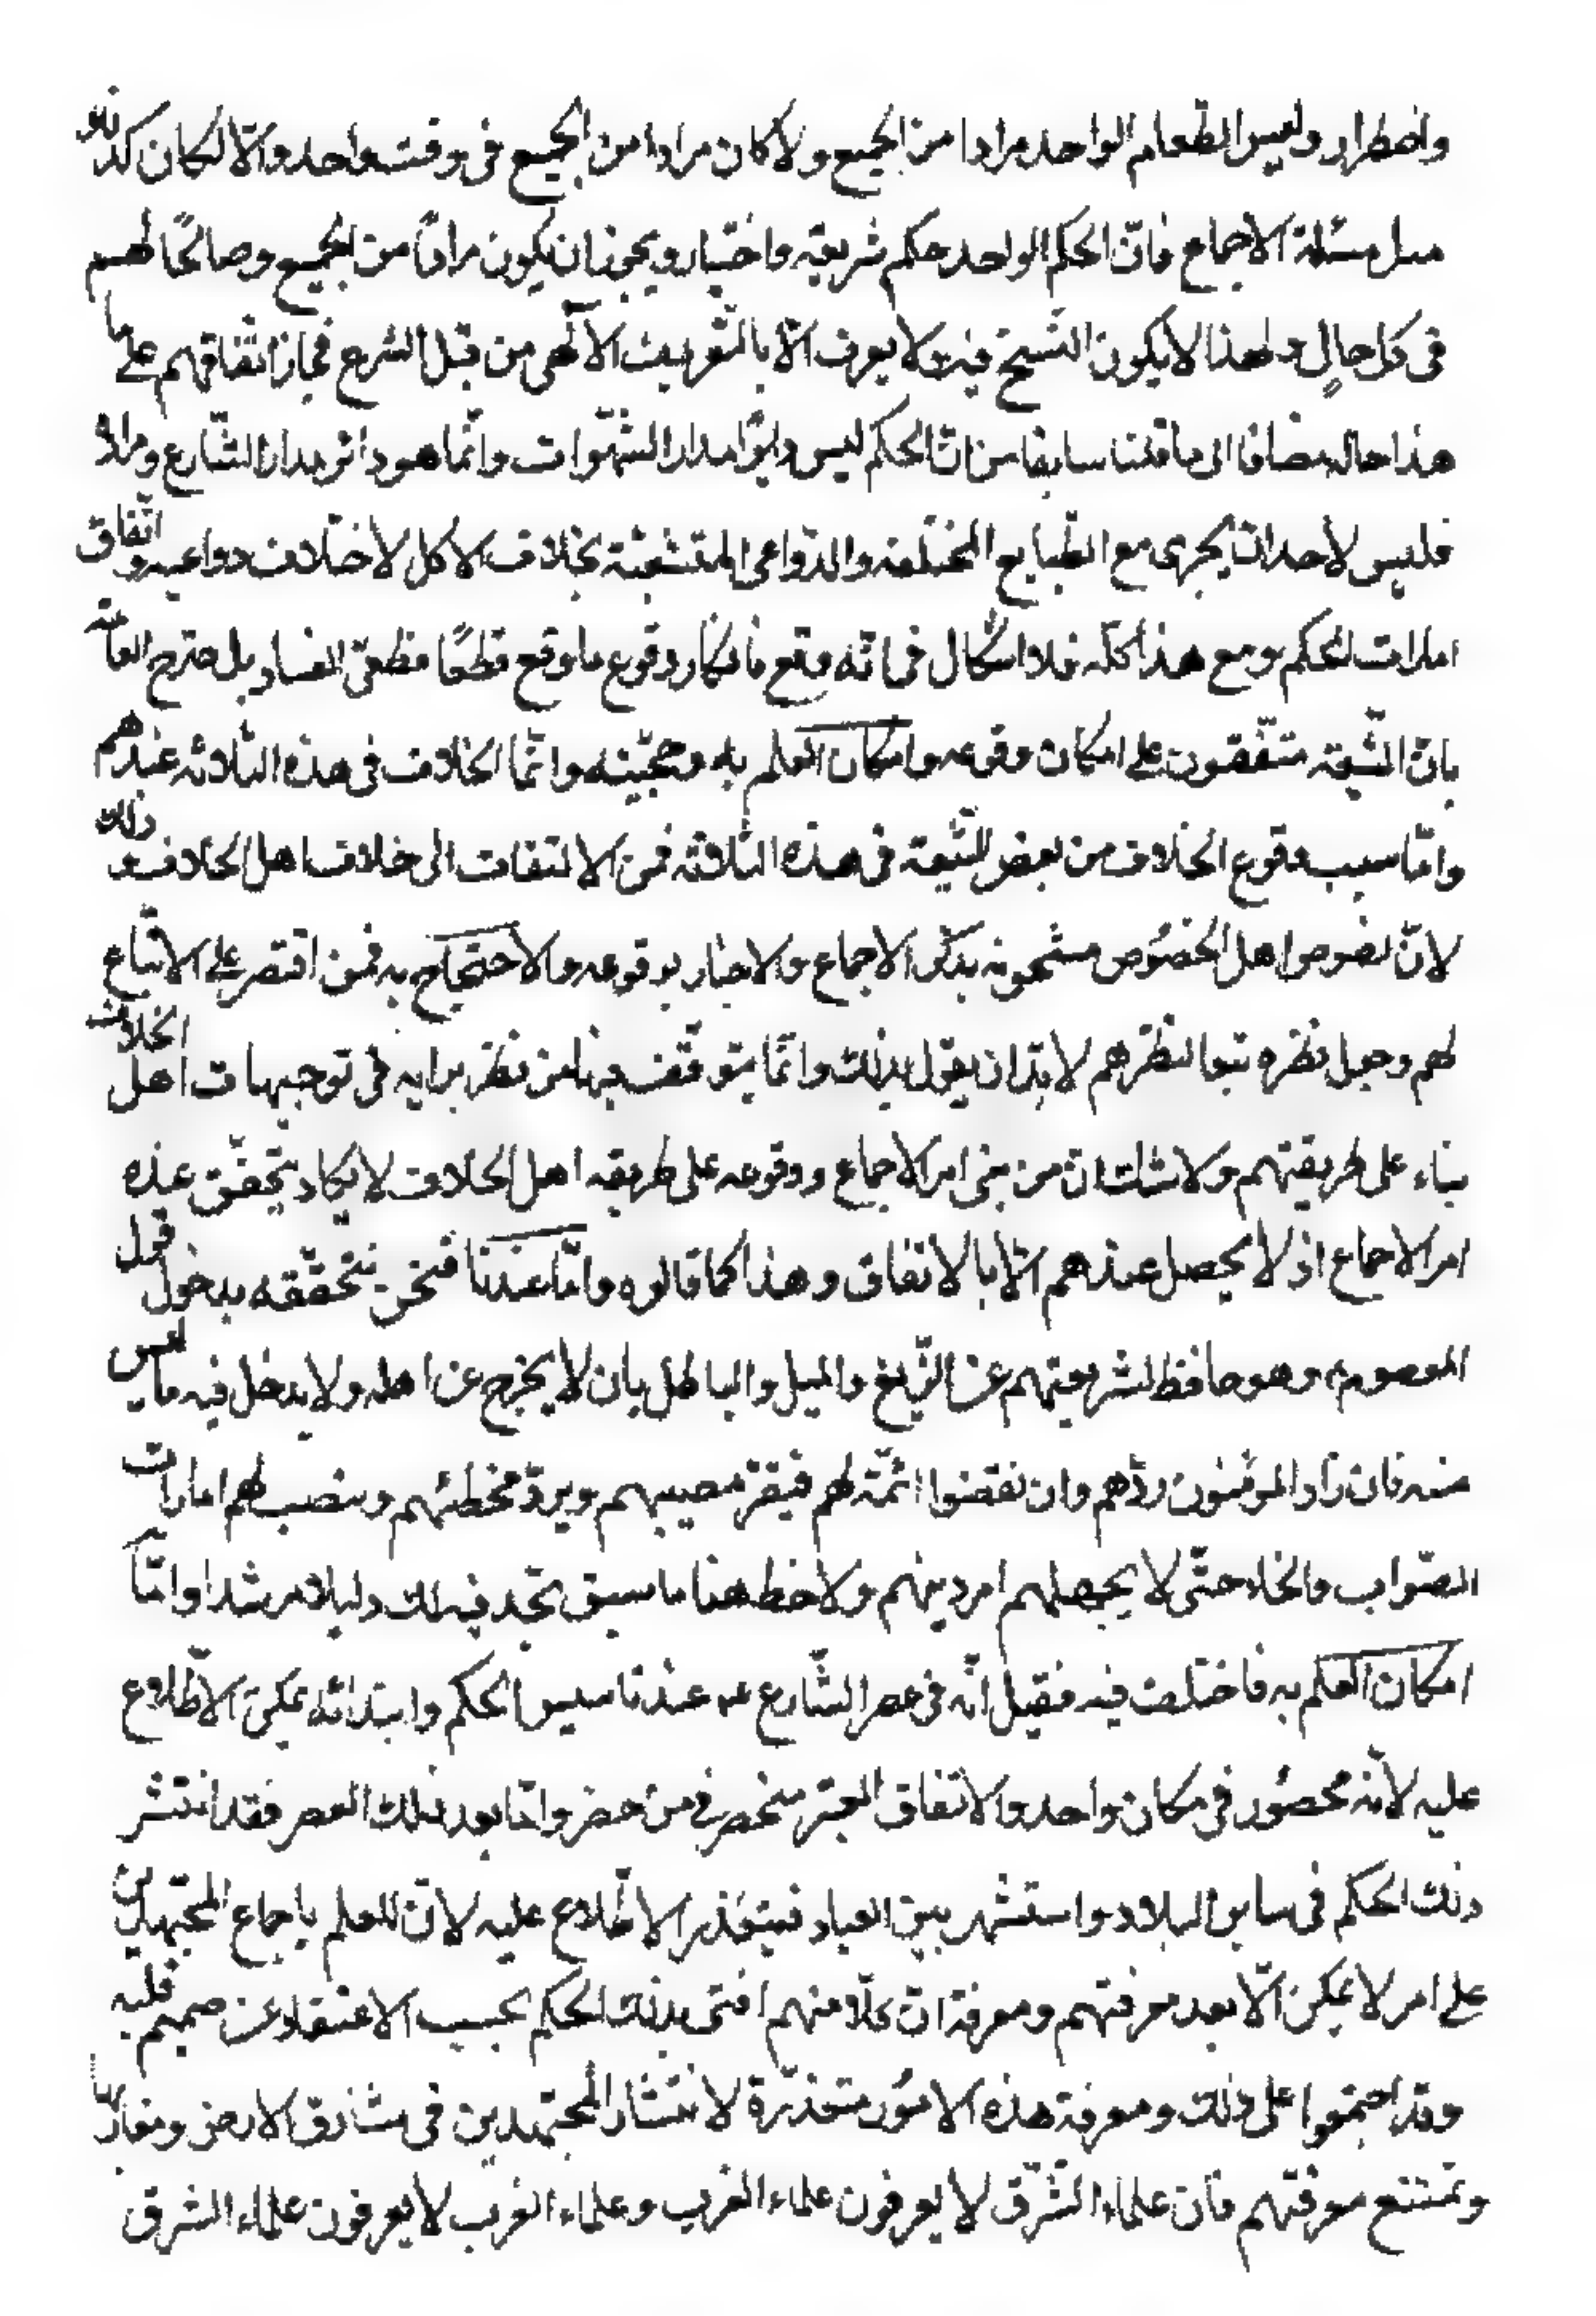 واضطرار وليس الطعام الواحد مرادا من الجميع ولا كان مرادا من الجميع في وقت واحد والّا لكان كذلك
مثل مسئلة الاجماع فانّ الحكم الواحد حكم شريعة واختيار ويجوز ان يكون مرادًا من الجميع وصالحًا لهم
في كل حالٍ ولهذا لا يكون النّسخ فيه ولا يعرف الّا بالتّعريف الالهى من قبل الشرع فجاز اتّفاقهم على ما
هذا حاله مضافا الى ما قلنا سابقا من انّ الحكم ليس دايرًا مدار الشّهوات وانّما هو دائر مدار الشّارع ومراده
فليس لاحد ان يجرى مع الطّبايع المختلفه والدّواعى المتشعّبة بخلاف الاكل لاختلاف دواعيه واتّفاق
امارات الحكم ومع هذا كلّه فلا اشكال في انّه وقع فانكار وقوع ما وقع قطعًا قطعىّ الفساد بل صرّح العلّامة
بانّ الشّيعة متّفقون على امكان وقوعه وامكان العلم به وحجّيّته وانّما الخلاف في هذه الثلاثه عند غيرهم
وامّا سبب وقوع الخلاف من بعض الشّيعة في هذه الثلاثه فمن الالتفات الى خلاف اهل الخلاف وذلك
لانّ نصوص اهل الخصُوص مشحونه بذكر الاجماع والاخبار بوقوعه والاحتجاج به فمن اقتصر على الاتّباع
لهم وجعل نظره تبعا لنظرهم لا بدّ ان يقول بذلك وانّما يتوقّف فيها من نظر برايه في توجيهات اهل الخلاف
بناء على طريقتهم ولا شك انّ من بنى امر الاجماع ووقوعه على طريقه اهل الخلاف لا يكاد يتحقّق عنده
امر الاجماع اذ لا يحصل عندهم الّا بالاتفاق وهذا كما قالوه وامّا عندنا فنحن نتحقّقه بدخول قول
المعصوم ع وهو حافظ لشريعتهم عن الزّيغ والميل والباطل بان لا يخرج عن اهله ولا يدخل فيه ما ليس
منه فان زاد المؤمنون ردّهم وان نقصوا اتمّه لهم فيقرّ مصيبهم ويردّ مخطئهم وينصب لهم امارات
الصّواب والخطا حتّى لا يجهلهم امر دينهم ولاحظ هنا ما سبق تجد فيه لك دليلا مرشدا وامّا
امكان العلم به فاختلف فيه فقيل انّه في عصر الشّارع عم عند تاسيس الحكم وابتدائه يمكن الاطّلاع
عليه لانّه محصُور في مكان واحد والاتفاق المعتبر منحصر في من حضر وامّا بعد ذلك العصر فقد انتشر
ذلك الحكم في ساير البلاد واستشهر بين العباد فيتعذر الاطّلاع عليه لانّ العلم باجماع المجتهدين
على امر لا يمكن الّا بعد معرفتهم ومعرفة انّ كلّا منهم افتى بذلك الحكم بحسب الاعتقاد عن صميم قلبه
وقد اجتمعوا على ذلك ومعرفة هذه الامُور متعذّرة لانتشار المجتهدين في مشارق الارض ومغاربها
وتمتنع معرفتهم فان علماء الشّرق لا يعرفون علماء الغرب وعلماء الغرب لا يعرفون علماء الشرق